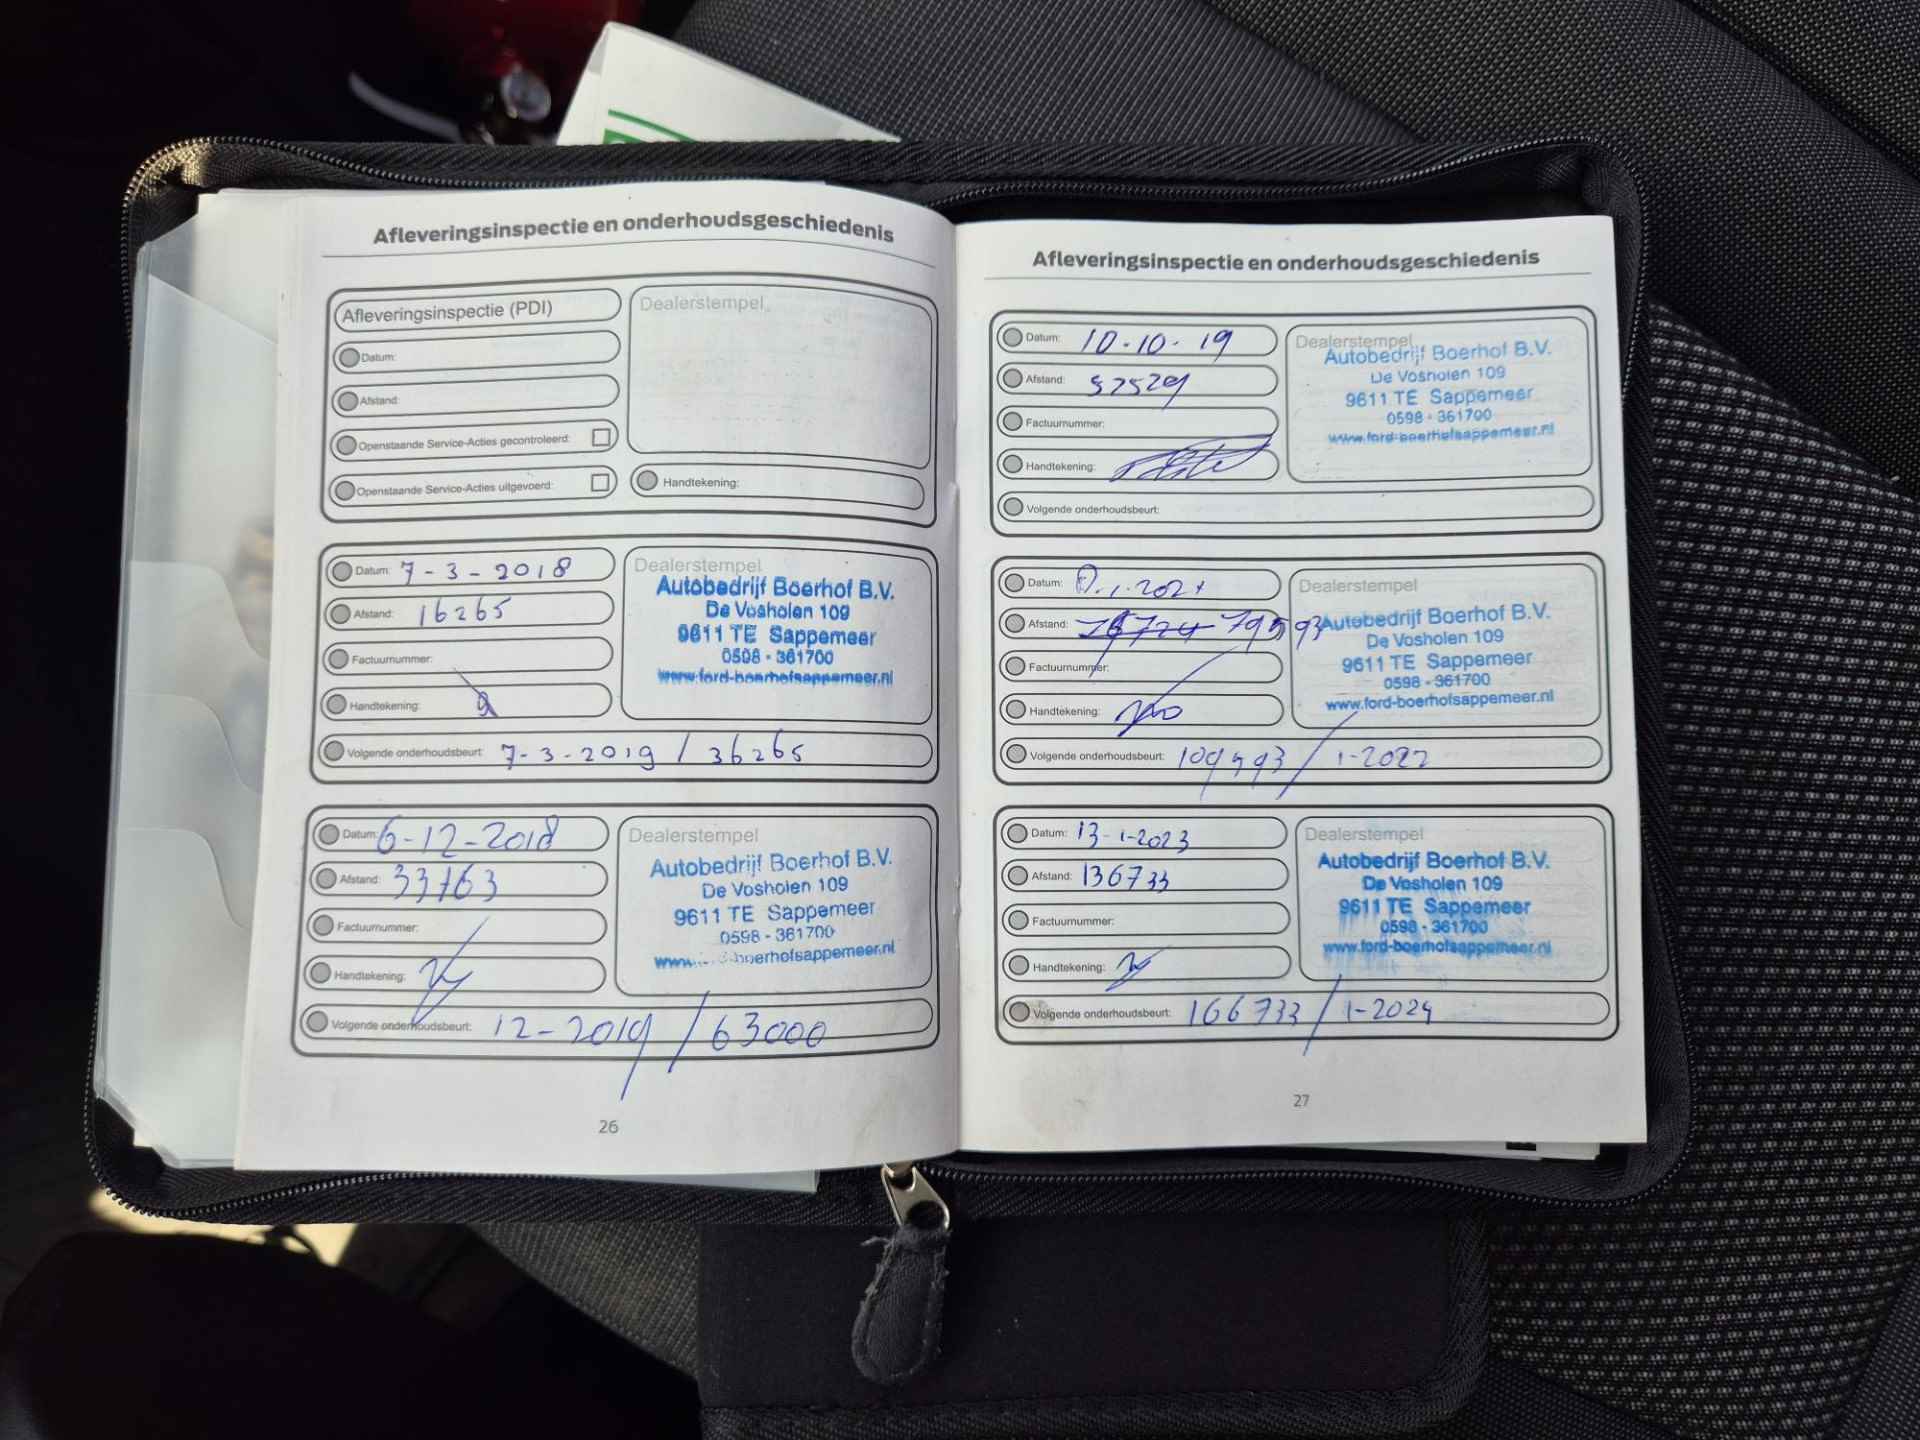 Afleveringsinspectie en onderhoudsgeschiedenis
Afleveringsinspectie (PDI)
Dealerstempel
Datum:
Afstand:
Openstaande Service-Acties gecontroleerd:
Openstaande Service-Acties uitgevoerd:
Handtekening:
Datum: 7-3-2018
Afstand: 16265
Factuurnummer:
Handtekening:
Volgende onderhoudsbeurt: 7-3-2019 / 36265
Dealerstempel
Autobedrijf Boerhof B.V.
De Vosholen 109
9611 TE Sappemeer
0598 - 361700
www.ford-boerhofsappemeer.nl
Datum: 6-12-2018
Afstand: 33763
Factuurnummer:
Handtekening:
Volgende onderhoudsbeurt: 12-2019 / 63000
Dealerstempel
Autobedrijf Boerhof B.V.
De Vosholen 109
9611 TE Sappemeer
0598 - 361700
26
Afleveringsinspectie en onderhoudsgeschiedenis
Datum: 10-10-19
Afstand: 52529
Factuurnummer:
Handtekening:
Volgende onderhoudsbeurt:
Dealerstempel
Autobedrijf Boerhof B.V.
De Vosholen 109
9611 TE Sappemeer
0598 - 361700
www.ford-boerhofsappemeer.nl
Datum:
Afstand:
Factuurnummer:
Handtekening:
Volgende onderhoudsbeurt: / 1-2022
Dealerstempel
Autobedrijf Boerhof B.V.
De Vosholen 109
9611 TE Sappemeer
0598 - 361700
www.ford-boerhofsappemeer.nl
Datum: 13-1-2023
Afstand: 136733
Factuurnummer:
Handtekening:
Volgende onderhoudsbeurt: 166733 / 1-2024
Dealerstempel
Autobedrijf Boerhof B.V.
De Vosholen 109
9611 TE Sappemeer
0598 - 361700
www.ford-boerhofsappemeer.nl
27